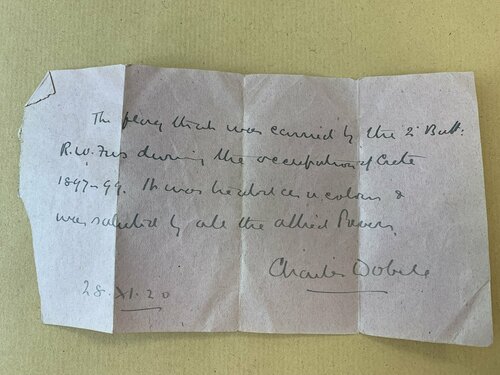 The flag that was carried by the 2d Batt:
R.W. Fus during the occupation of Crete
1897-99. It was treated as a colour &
was saluted by all the allied Powers
Charles Dobell
28.XI.20